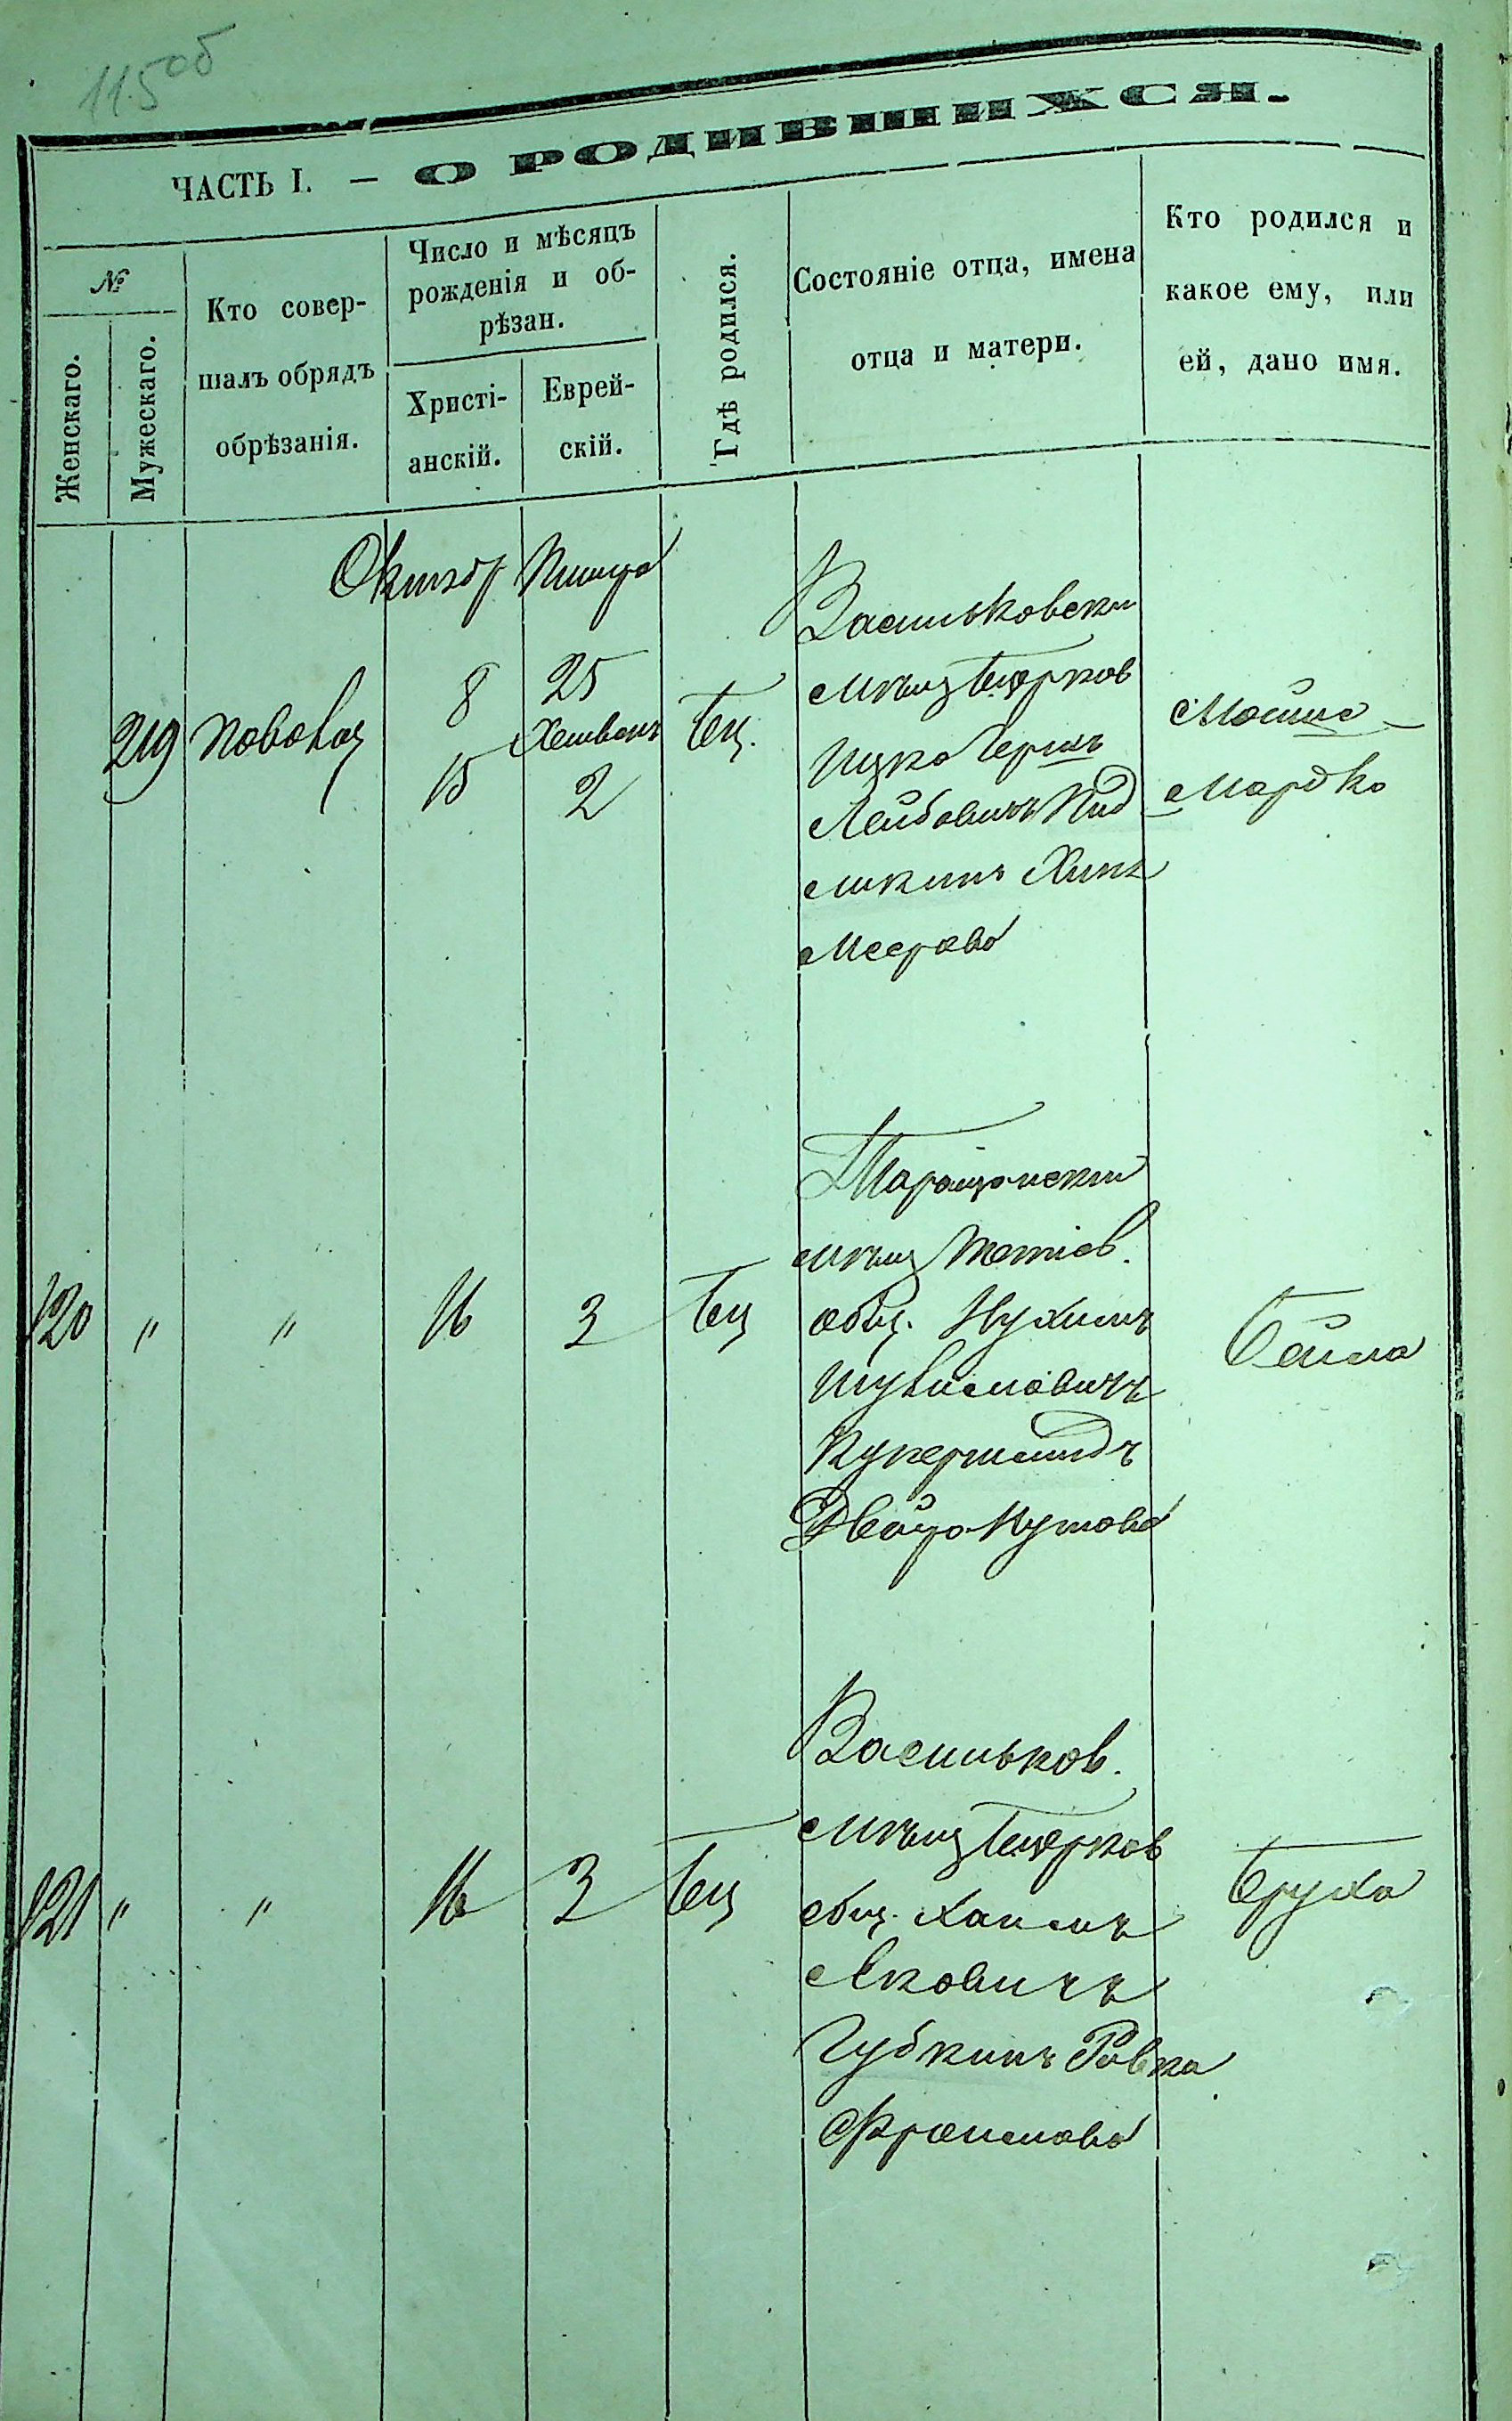 115об
ЧАСТЬ I. — О РОДИВШИХСЯ.
№
Женскаго.
Мужескаго.
Кто совер-
шалъ обрядъ
обрѣзанія.
Число и мѣсяцъ
рожденія и об-
рѣзан.
Христі-
анскій.
Еврей-
скій.
Гдѣ родился.
Состояніе отца, имена
отца и матери.
Кто родился и
какое ему, или
ей, дано имя.
Октябр Тишра
219
8
15
25
Хешванъ
2
Бц.
Васильковски
мѣщ Бѣлрков
Ицко Берко
Лейбовичъ
Хина
Меерова
Мойше
Мордко
120 " " 16 3 Бц
Таращанский
мѣщ Тетіев.
общ. Нухимъ
Шулимовичъ
Купершмидъ
Двойра
Бейла
121 " " 16 3 Бц
Васильков.
мѣщ Бѣлрков
общ. Хаимъ
Яковичъ
Губкинъ Ривка
Фроимова
Бруха